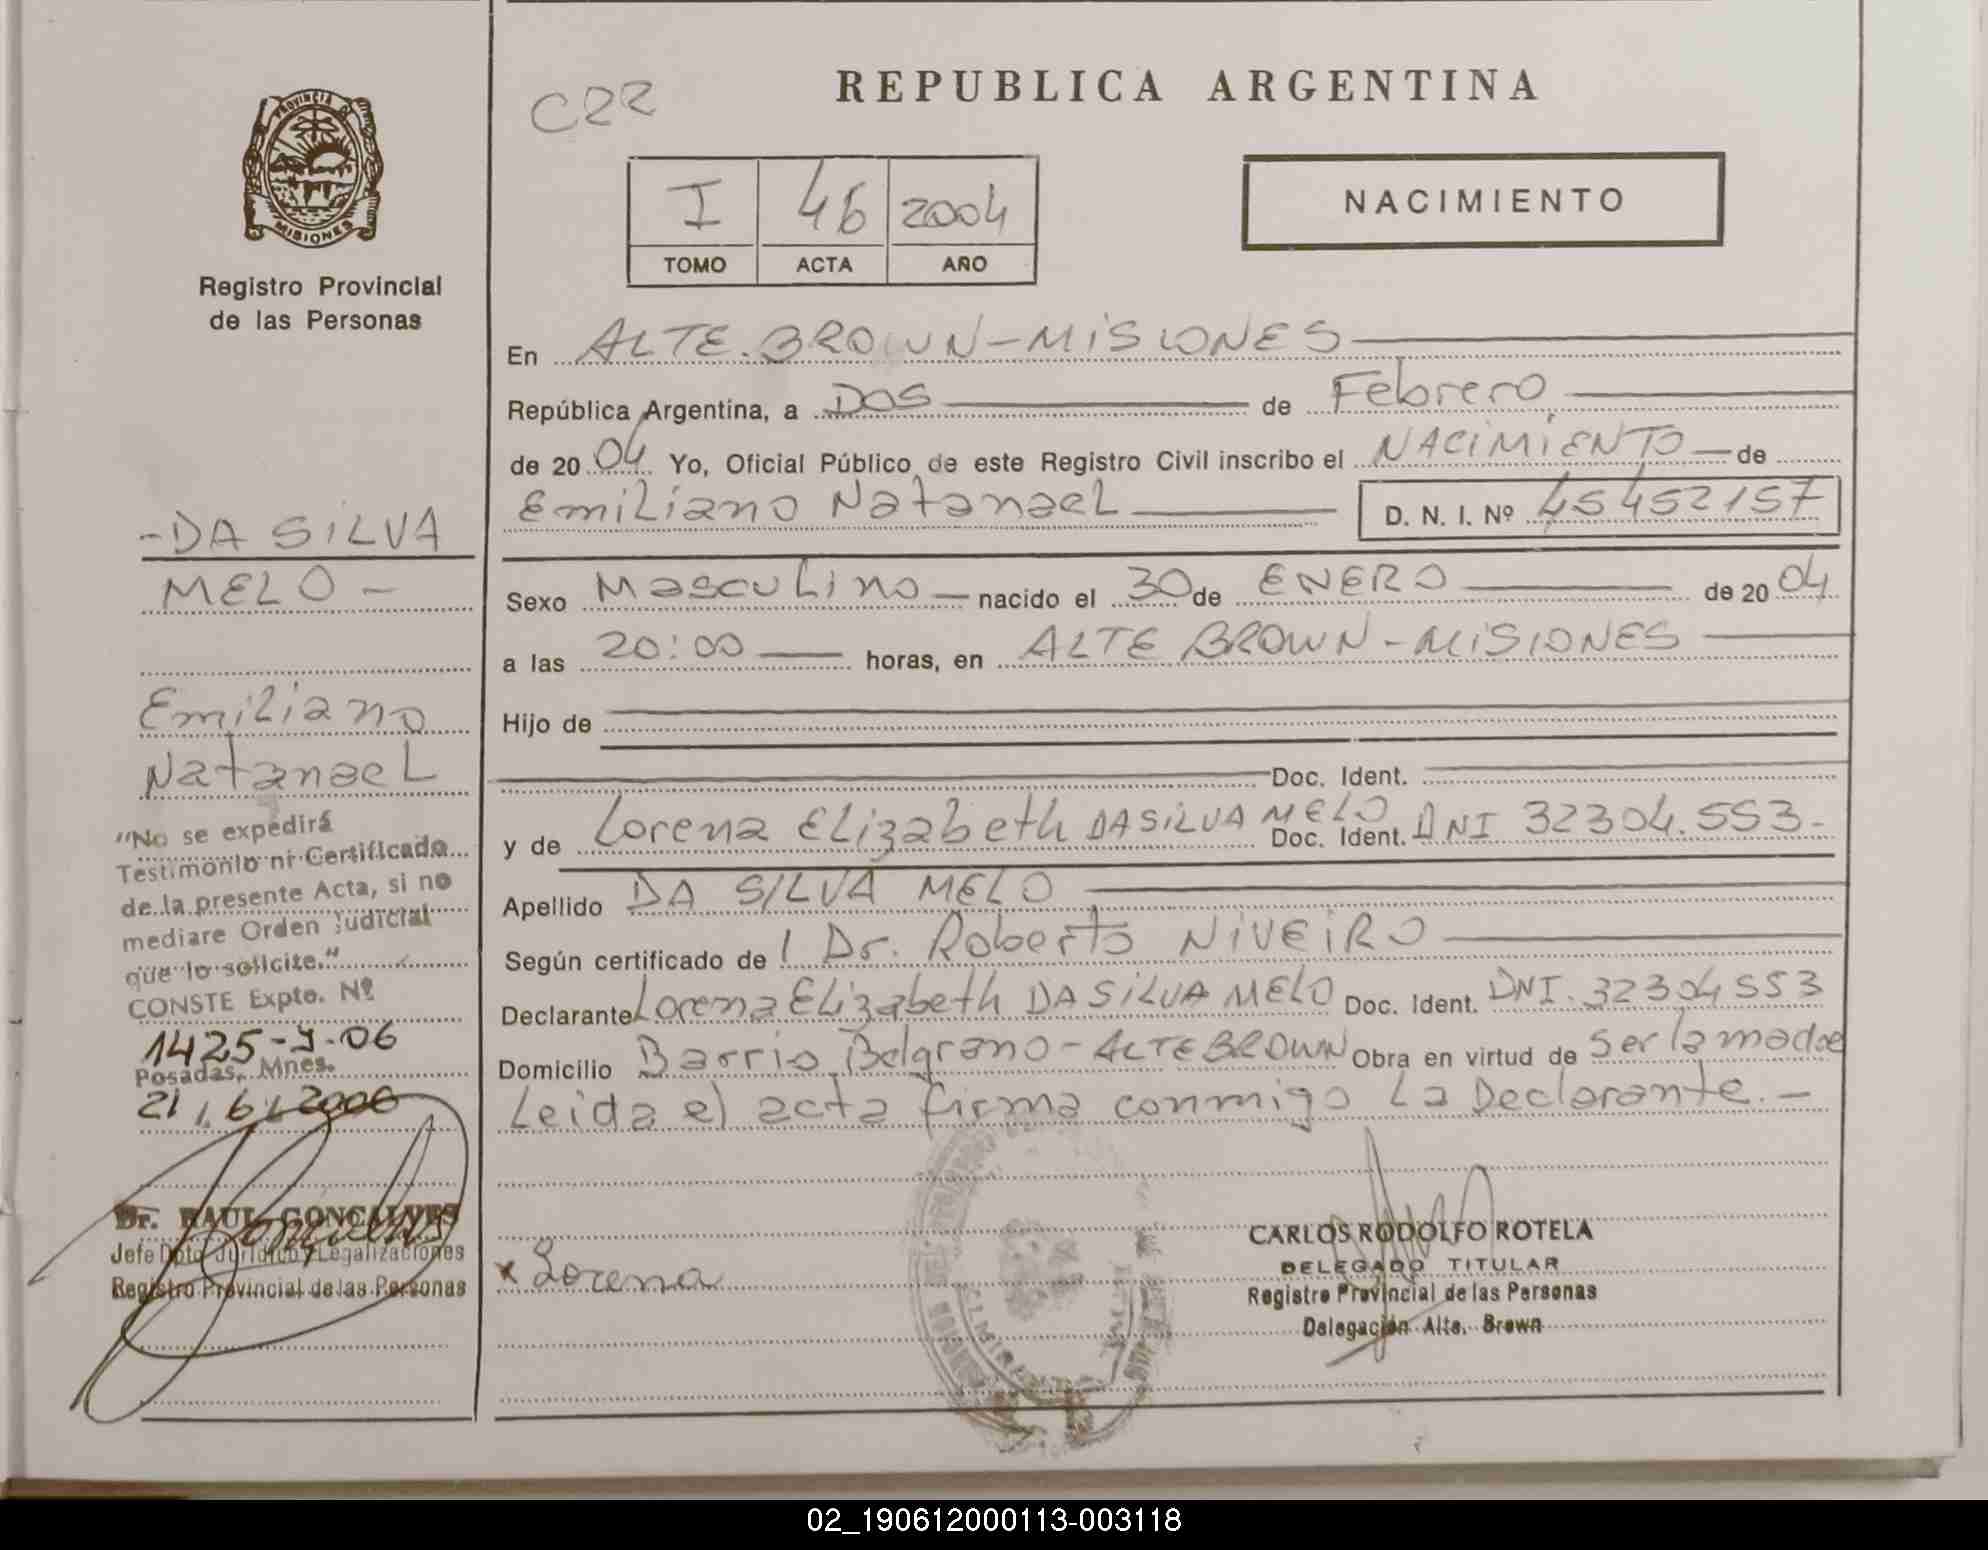 PROVINCIA DE
MISIONES
Registro Provincial
de las Personas
-DA SILVA
MELO-
Emiliano
Natanael
"No se expedirá
Testimonio ni Certificado
de la presente Acta, si no
mediare Orden Judicial
que lo solicite."
CONSTE Expte. Nº
1425-9-06
Posadas, Mnes.
21/6/2006
Dr. RAUL GONCALVES
Jefe Dpto Jurídico y Legalizaciones
Registro Provincial de las Personas
C22
REPUBLICA ARGENTINA
I 46 2004
TOMO ACTA AÑO
NACIMIENTO
En ALTE. BROWN-MISIONES
República Argentina, a DOS de Febrero
de 2004 Yo, Oficial Público de este Registro Civil inscribo el NACIMIENTO de
Emiliano Natanael D. N. I. Nº 45452157
Sexo Masculino nacido el 30 de ENERO de 2004
a las 20:00 horas, en ALTE BROWN-MISIONES
Hijo de
Doc. Ident.
y de Lorena Elizabeth DA SILVA MELO Doc. Ident. DNI 32304.553-
Apellido DA SILVA MELO
Según certificado de Dr. Roberto NIVEIRO
Declarante Lorena Elizabeth DA SILVA MELO Doc. Ident. DNI. 32304553
Domicilio Barrio Belgrano-ALTE BROWN Obra en virtud de Ser la madre
Leida el acta firma conmigo La Declarante.-
x Lorena
CARLOS RODOLFO ROTELA
DELEGADO TITULAR
Registro Provincial de las Personas
Delegación Alte. Brown
02_190612000113-003118